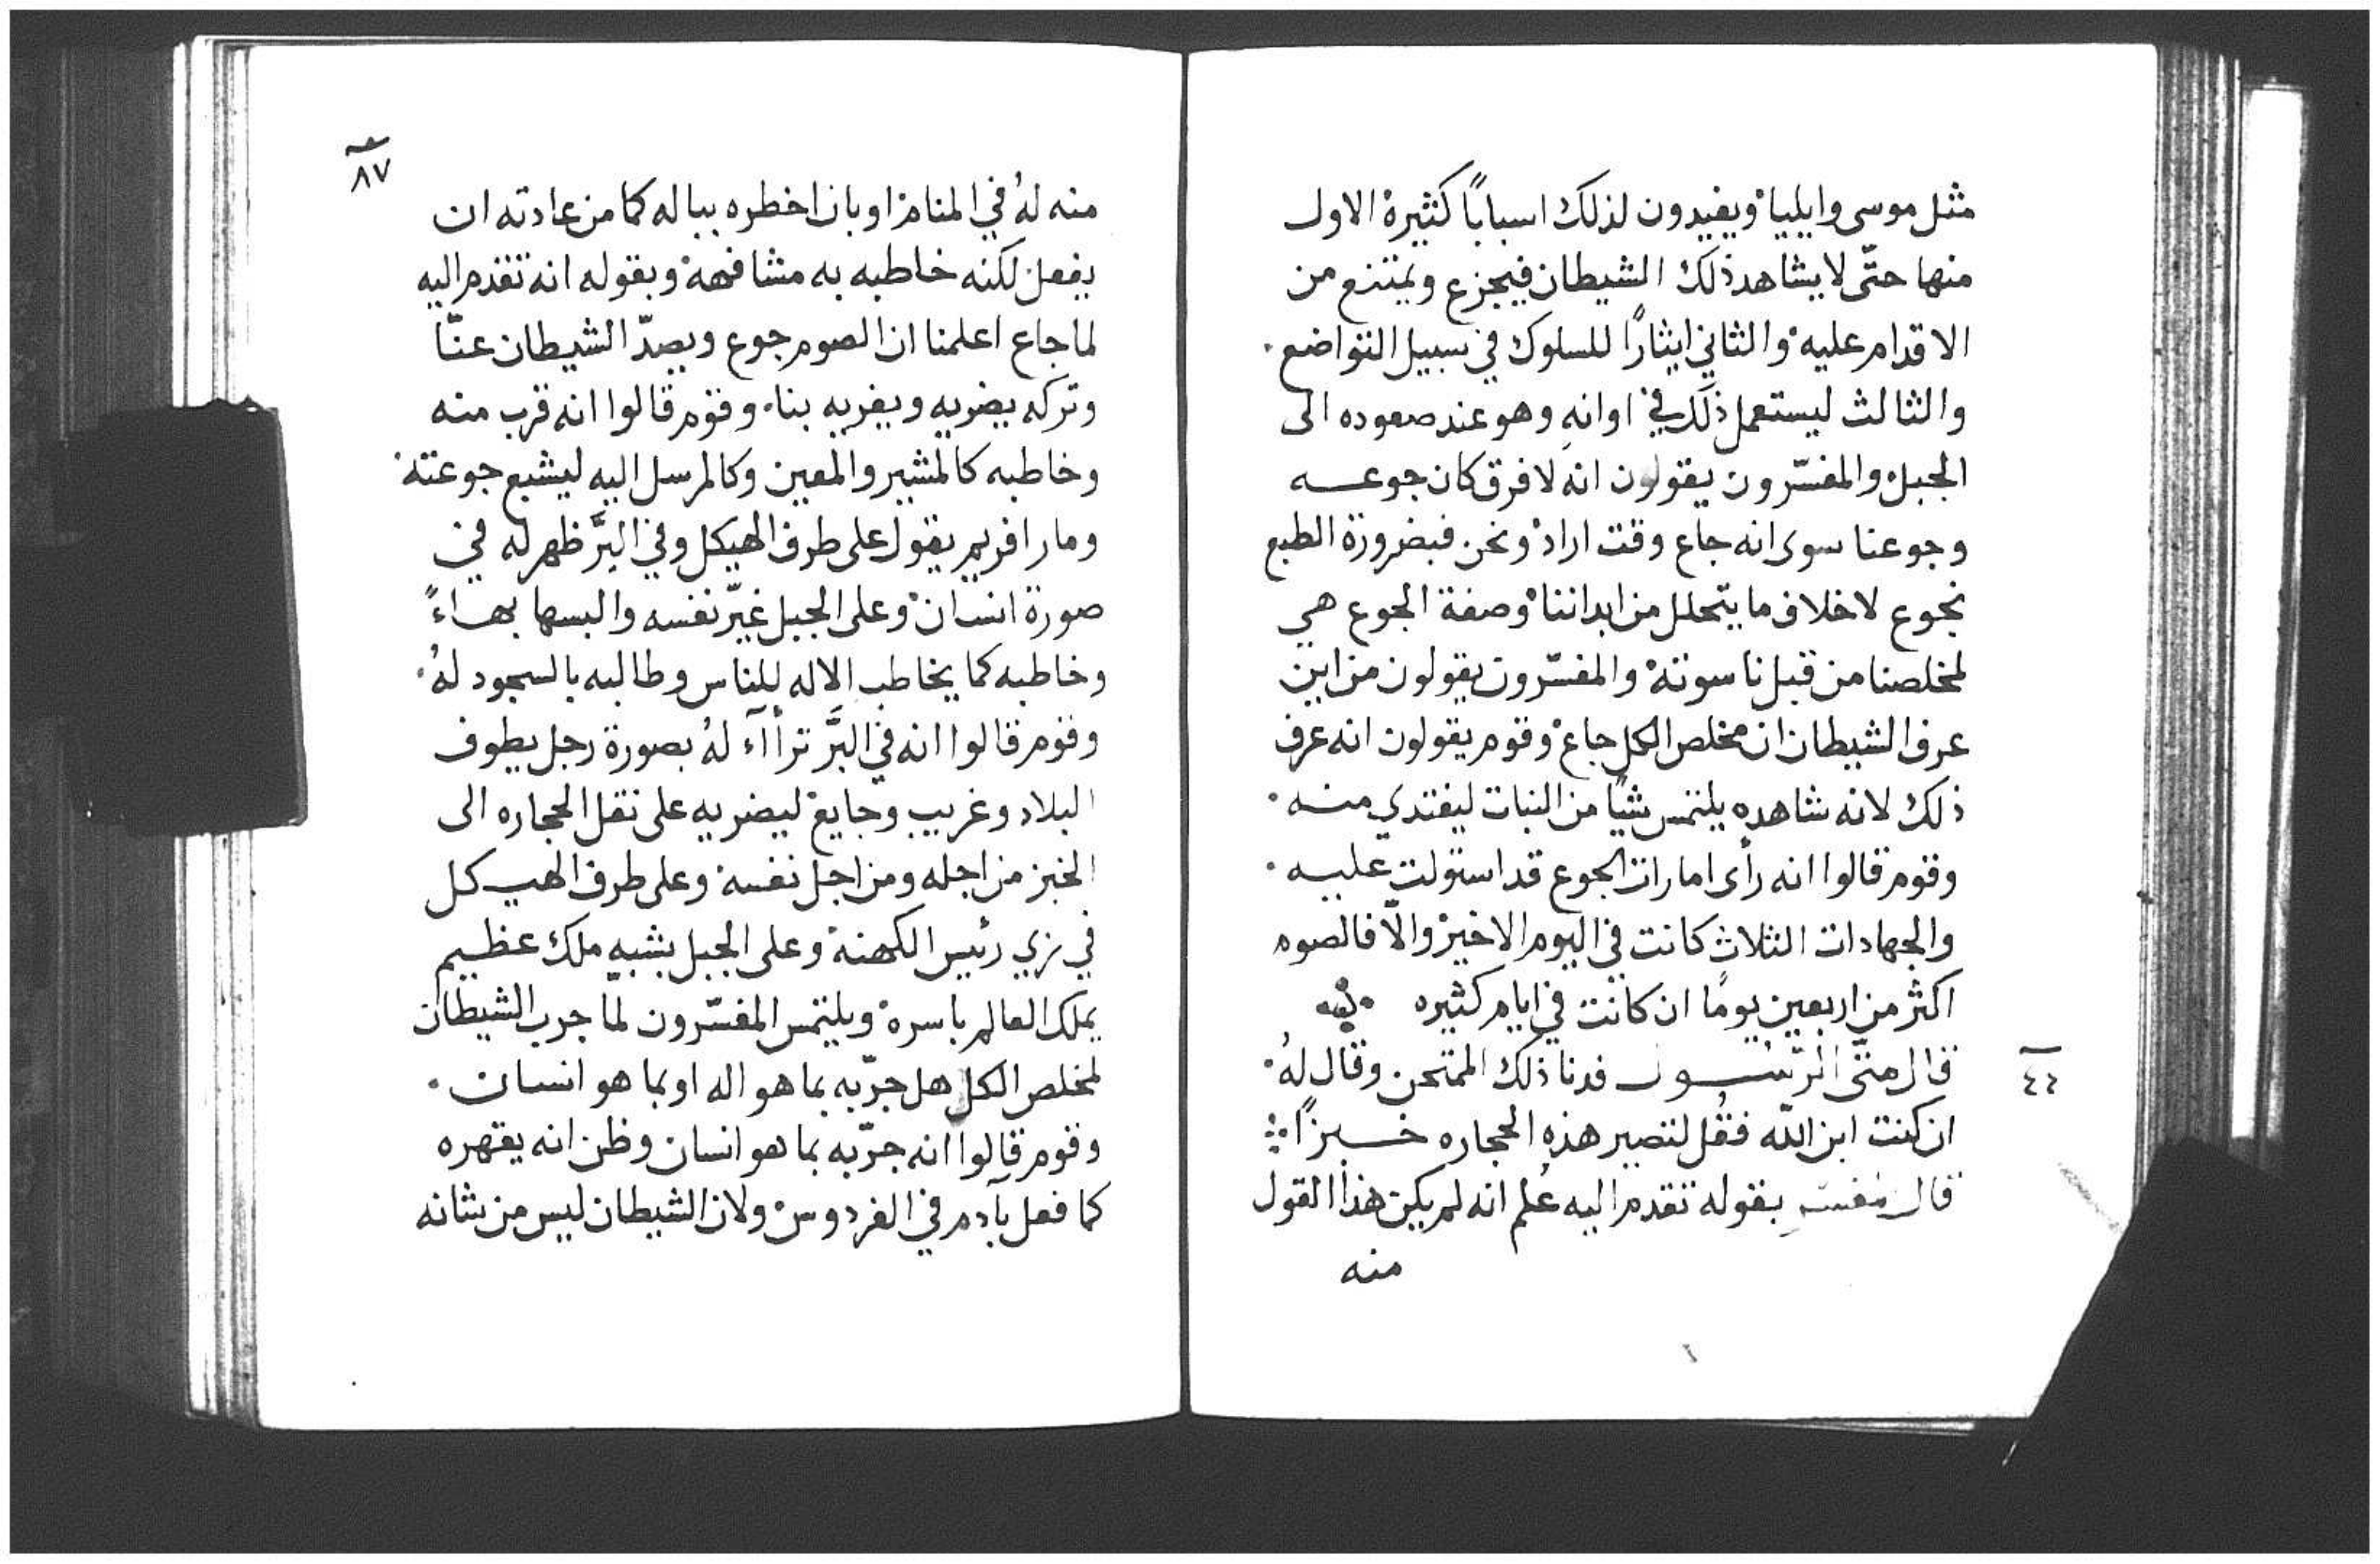 مثل موسى وايلياْ ويفيدون لذلك اسبابًا كثيرة الاول
منها حتّى لا يشاهد ذلك الشيطان فيجزع ويمتنع من
الاقدام عليهْ والثاني ايثارًا للسلوك في سبيل التواضع ۰
والثالث ليستعمل ذلك في اوانهِ وهو عند صعوده الى
الجبلْ والمفسّرون يقولون انه لا فرق كان جوعــه
وجوعنا سوى انه جاع وقت ارادْ ونحن فبضرورة الطبع
نجوع لاخلاف ما يتحلل من ابدانناْ وصفة الجوع هي
لمخلصنا من قبل ناسوتهْ والمفسّرون يقولون من اين
عرف الشيطان ان مخلص الكل جاعْ وقوم يقولون انه عرف
ذلك لانه شاهده يلتمس شيًا من النبات ليفتدي منــه ۰
وقوم قالوا انه رأى امارات الجوع قد استولت عليــه ۰
والجهادات الثلاث كانت في اليوم الاخيرْ والّا فالصوم
اكثر من اربعين يومًا ان كانت في ايام كثيره
٤٤
قال متّى الرّسُــول فدنا ذلك الممتحن وقال لهُ ۰
ان كنت ابن اللّه فقُل لتصير هذهِ الحجاره خــبزًا ⁘
قال مفسّر بقوله تقدم اليه عُلم انه لم يكن هذا القول
منه
٨٧
منه لهُ في المنام او بان اخطره بباله كما من عادته ان
يفعل لكنه خاطبه به مشافهةْ وبقوله انه تقدم اليه
لما جاع اعلمنا ان الصوم جوع ويصدّ الشيطان عنّا
وتركه يضريه ويغريه بنا۰ وقوم قالوا انه قرب منه
وخاطبه كالمشير والمعين وكالمرسل اليه ليشبع جوعته ۰
ومار افريم يقول على طرف الهيكل وفي البَرّ ظهر له في
صورة انسانْ وعلى الجبل غيّر نفسه والبسها بهــاءً
وخاطبه كما يخاطب الاله للناس وطالبه بالسجود لهُ ۰
وقوم قالوا انه في البَرّ ترأآء لهُ بصورة رجل يطوف
البلاد وغريب وجايعْ ليضريه على نقل الحجاره الى
الخبز من اجله ومن اجل نفسهْ وعلى طرف الهيــكل
في زي رئيس الكهنهْ وعلى الجبل يشبه ملك عظــيم
يملك العالم باسرهْ ويلتمس المفسّرون لمّا جرب الشيطان
لمخلص الكل هل جرّبه بما هو اله او بما هو انسان ۰
وقوم قالوا انه جرّبه بما هو انسان وظن انه يقهره
كما فعل بآدم في الفردوسْ ولان الشيطان ليس من شانه